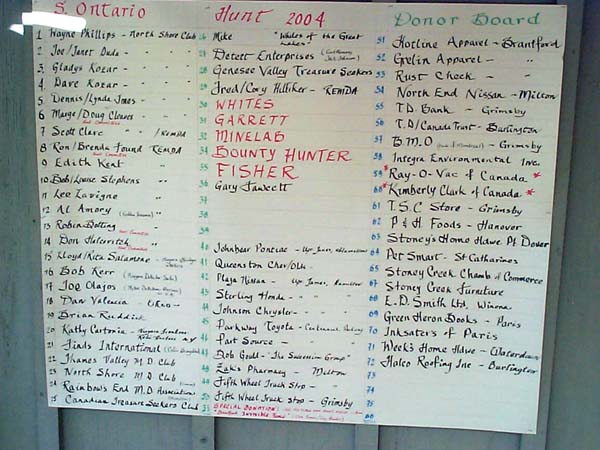 S. Ontario Hunt 2004 Donor Board
1 Wayne Phillips - North Shore Club
2 Joe/Janet Duda - " "
3 Gladys Kozar - " "
4 Dave Kozar - " "
5 Dennis/Lynda Jones - " "
6 Marge/Doug Cleaves - " "
7 Scott Clare " / REMDA
8 Ron/Brenda Found REMDA
9 Edith Kent "
10 Bob/Louise Stephens " "
11 Lee Lavigne
12 Al Amory
13 Robin Botting
14 Don
15 Lloyd/Rita Salamone -
16 Bob Kerr
17 Joe Olajos
18 Dan Valencia -
19 Brian Ruddick
20 Kathy Cartonia -
21 Finds International
22 Thames Valley M.D. Club
23 North Shore M.D. Club
24 Rainbows End M.D. Associations
25 Canadian Treasure Seekers Club
26 Mike "Whites of the Great Lakes"
27 Detect Enterprises
28 Genesee Valley Treasure Seekers
29 Fred/Cory Hilliker - REMDA
30 WHITES
31 GARRETT
32 MINELAB
34 BOUNTY HUNTER
35 FISHER
36 Gary Fawcett
37
38
39
40 Johnbear Pontiac -
41 Queenston Chev/Olds -
42 Plaza Nissan - Upr James, Hamilton
43 Sterling Honda - " "
44 Johnson Chrysler - " "
45 Parkway Toyota - Centennial Parkway
46 Part Source -
47 Bob Gould - "The Suceveim Group"
48 Zak's Pharmacy - Milton
49 Fifth Wheel Truck Stop -
50 Fifth Wheel Truck Stop - Grimsby
SPECIAL DONATION:
INVISIBLE FENCE"
51 Hotline Apparel - Brantford
52 Gelin Apparel - "
53 Rust Check - "
54 North End Nissan - Milton
55 T.D. Bank - Grimsby
56 T.D/Canada Trust - Burlington
57 B.M.O (Bank of Montreal) - Grimsby
58 Integra Environmental Inc.
59 * Ray-O-Vac of Canada *
60 * Kimberly Clark of Canada *
61 T.S.C Store - Grimsby
62 P & H Foods - Hanover
63 Stoney's Home Hdwe Pt Dover
64 Pet Smart - St Catharines
65 Stoney Creek Chamb of Commerce
67 Stoney Creek Furniture
68 E.D. Smith Ltd, Winona
69 Green Heron Books - Paris
70 Inksaters of Paris
71 Week's Home Hdwe - Waterdown
72 Halco Roofing Inc - Burlington
73
74
75